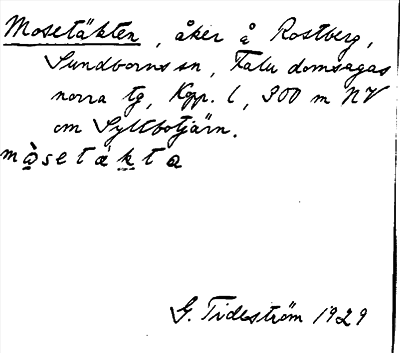 Mosetäkten, åker å Rostberg,
Sundborns sn, Falu domsagas
norra tg, Kopp. l, 300 m NV
om Syltbotjärn.
mòsetäkta
G. Tideström 1929